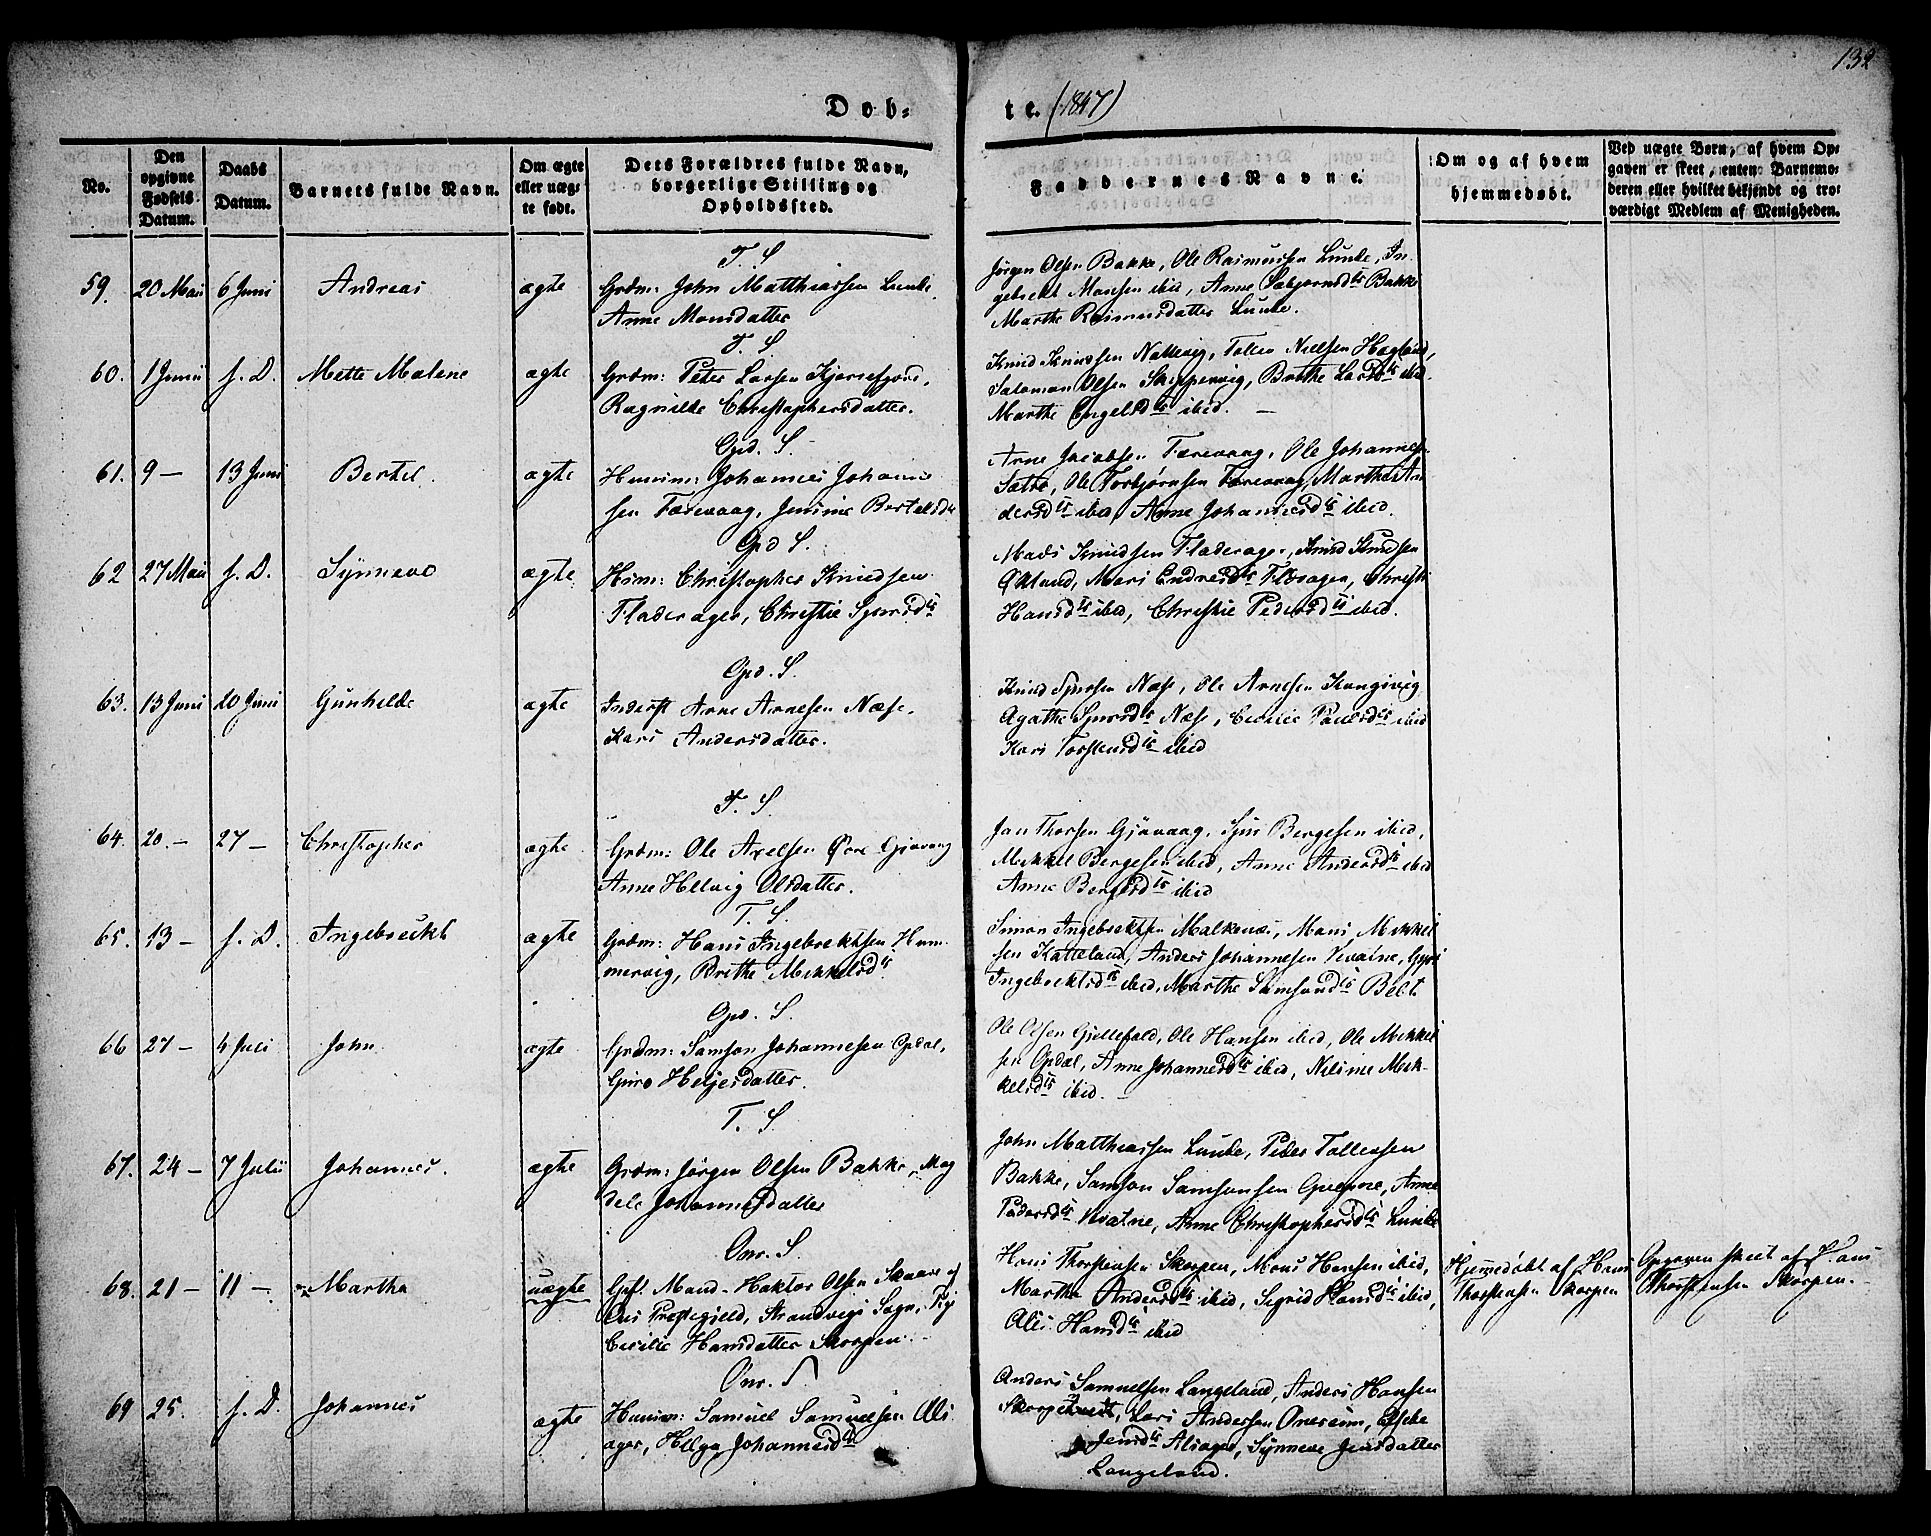 132
Døb= te. (1847)
No.
Den opgivne Fødsels Datum.
Daabs Datum.
Barnets fulde Navn.
Om ægte eller uæg- te født.
Dets Forældres fulde Navn, borgerlige Stilling og Opholdssted.
Faddernes Navne.
Om og af hvem hjemmedøbt.
Ved uægte Børn, af hvem Op- gaven er skeet, enten Barnemo- deren eller hvilket bekjendt og tro- værdigt Medlem af Menigheden.
T. S
59. 20 Mai 6 Juni Andreas ægte
Grdm: John Matthiassen Lunde,
Anne Monsdatter
Jørgen Olsen Bakke, Ole Rasmussen Lunde, In-
gebrekt Monsen ibid, Anne Bakke
Marthe Rasmusdatter Lunde.
T. S.
60. 1 Junii s. D. Mette Malene ægte
Grdm: Peter Larsen
Ragnilde Christophersdatter.
Knud Knudsen Nattevig, Nielsen
Salamon Olsen Skippervig, Brithe Larsdtr ibid.
Marthe Engelsdtr ibid. —
Opd. S.
61. 9 — 13 Juni Bertel. ægte
Huusm: Johannes Johanne
sen Færevaag, Bertelsdtr
Arne Jacobsen Færevaag, Ole Johannes-
Sætre, Ole Torbjørnsen Færevaag, Marthe An
dersdtr ibid, Anne Johannesdtr ibid.
Opd S.
62 27 Mai s. D. Synneve ægte
Hsm: Christopher Knudsen
Fladerager, Christie Sjursdtr
Mads Knudsen Fladerager, Knud Knudsen
Økland, Mari Endresdtr Christi
Hansdtr ibid, Christie Pedersdtr ibid.
Opd. S.
63. 13 Juni 20 Juni Gunhilde ægte
Inderst Arne Arnesen Næse,
Kari Andersdatter.
Knud Sjursen Næse, Ole Arnesen
Agathe Sjursdtr Næse, Cecilie Paulsdtr ibid
Kari Torstensdtr ibid
T. S
64. 20. — 27 — Christopher ægte
Grdm: Ole Axelsen Øvre Gjøvaag
Anne Helvig Olsdatter.
Jan Thorsen Gjøvaag, Sjur Bergesen ibid,
Mikkel Bergesen ibid, Anne Andersdtr ibid
Anne Bergesdtr ibid
T. S.
65. 13 — s. D. Ingebreckt ægte
Grdm: Hans Ingebrektsen Hum-
mervig, Brithe Mikkelsdtr
Simon Ingebrektsen Malkenæs, Mons Mikkel
sen Katteland, Anders Johannesen Vevatne,
Ingebrektsdtr ibid, Marthe Samsonsdtr
Opd. S.
66 27 — 4 Juli John ægte
Grdm: Samson Johannesen Opdal,
Guro Heljesdatter.
Ole Olsen Gjellefald, Ole Hansen ibid, Ole Mikkel
sen Opdal, Anne Johannesdtr ibid, Nilsine Mik-
kelsdtr ibid. —
T. S.
67. 24 — 7 Julii Johannes. ægte
Grdm: Jørgen Olsen Bakke, Mag
dele Johannesdatter
John Matthiassen Lunde, Peder Tollefsen
Bakke, Samson Samsonsen Anne
Pedersdtr Anne Christophersdtr Lunde
Onr. S
68. 21 — 11 — Martha uægte
Gift Mand Haktor Olsen Skaare af
Præstegjeld, Strandvigs Sogn, Pige
Cecilie Hansdatter Skorpen
Hans Thorstensen Skorpen, Mons Hansen ibid,
Martha Andersdtr ibid, Sigrid Hansdtr ibid,
Alis Hansdtr ibid
Hjemmedøbt af Hans
Thorstensen Skorpen
Opgaven skeet af Hans
Thorstensen Skorpen. —
Onr. S
69 25. s. D. Johannes ægte
Huusm: Samuel Samuelsen Ali
ager, Helga Johannesdtr
Anders Samuelsen Langeland, Anders Hansen
Lars Andersen Onereim,
Jensdtr Aliager, Synneve Jensdatter
Langeland.